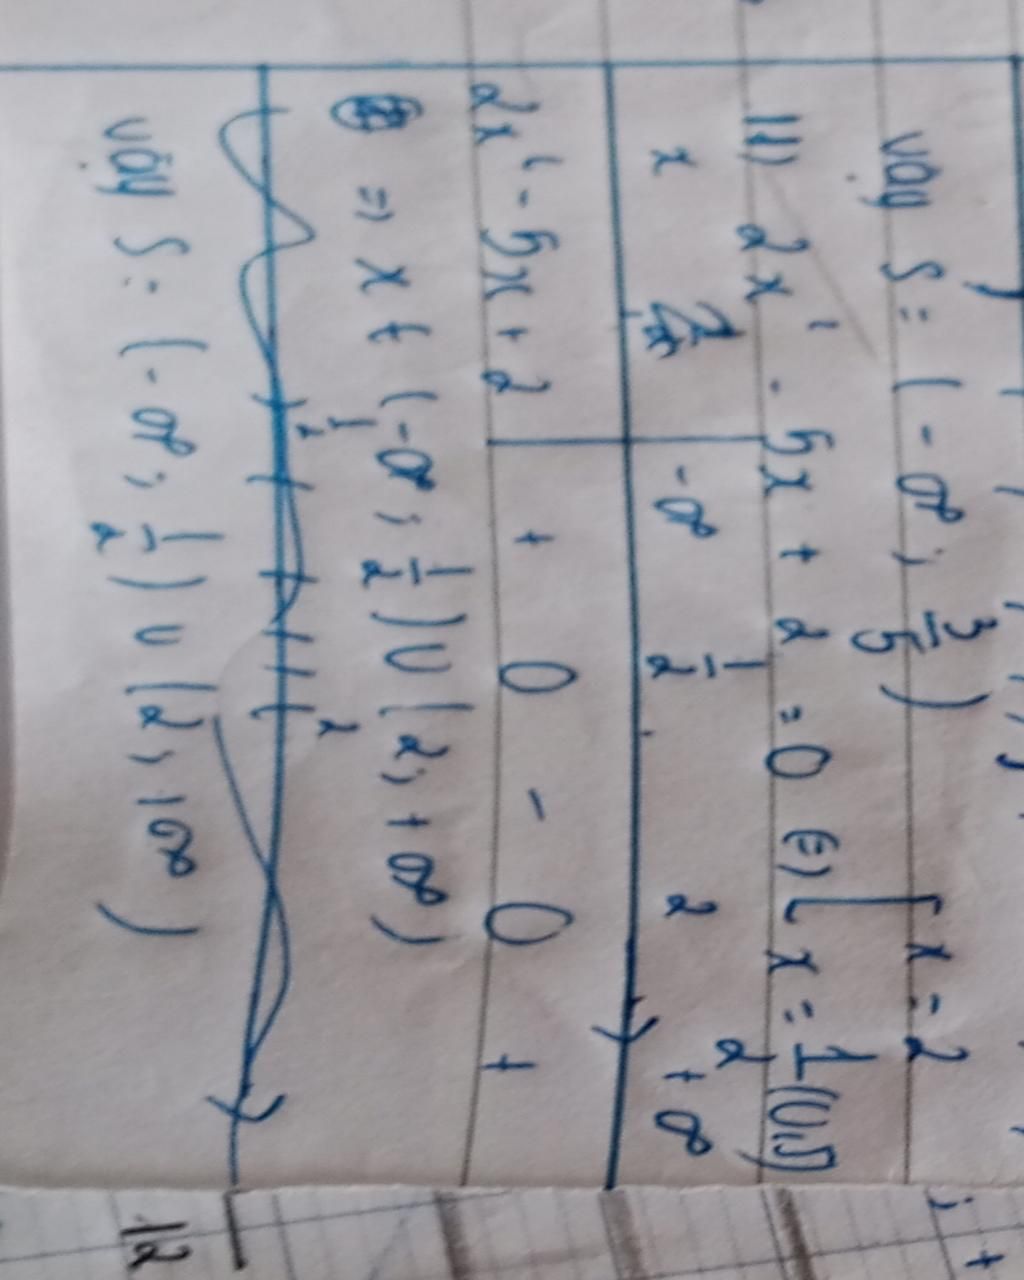 Vậy S = (-∞; 3/5)
11) 2x² - 5x + 2 = 0 (=) [ x = 2
x = 1/2 (0,5)
x -∞ 1/2 2 +∞
2x² - 5x + 2 + 0 - 0 +
=> x ∈ (-∞; 1/2) ∪ (2; +∞)
1/2 2
Vậy S = (-∞; 1/2) ∪ (2; +∞)
12